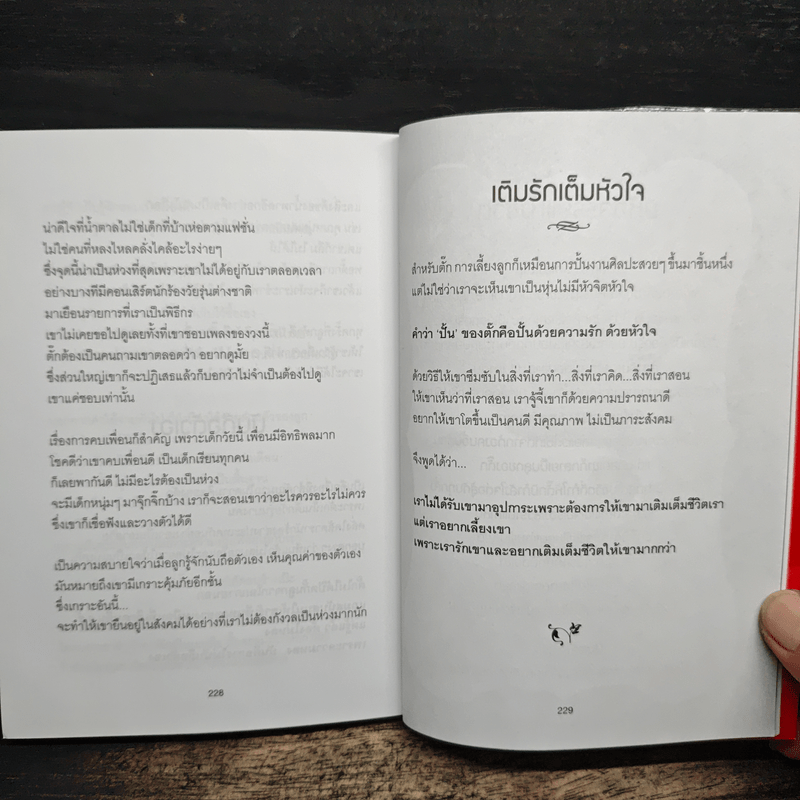 น่าดีใจที่น้ำตาลไม่ใช่เด็กที่บ้าเห่อตามแฟชั่น
ไม่ใช่คนที่หลงใหลคลั่งไคล้อะไรง่ายๆ
ซึ่งจุดนี้น่าเป็นห่วงที่สุดเพราะเขาไม่ได้อยู่กับเราตลอดเวลา
อย่างบางทีมีคอนเสิร์ตนักร้องวัยรุ่นต่างชาติ
มาเยือนรายการที่เราเป็นพิธีกร
เขาไม่เคยขอไปดูเลยทั้งที่เขาชอบเพลงของวงนี้
ตั๊กต้องเป็นคนถามเขาตลอดว่า อยากดูมั้ย
ซึ่งส่วนใหญ่เขาก็จะปฏิเสธแล้วก็บอกว่าไม่จำเป็นต้องไปดู
เขาแค่ชอบเท่านั้น
เรื่องการคบเพื่อนก็สำคัญ เพราะเด็กวัยนี้ เพื่อนมีอิทธิพลมาก
โชคดีว่าเขาคบเพื่อนดี เป็นเด็กเรียนทุกคน
ก็เลยพากันดี ไม่มีอะไรต้องเป็นห่วง
จะมีเด็กหนุ่มๆ มาจุ๊กจิ๊กบ้าง เราก็จะสอนเขาว่าอะไรควรอะไรไม่ควร
ซึ่งเขาก็เชื่อฟังและวางตัวได้ดี
เป็นความสบายใจว่าเมื่อลูกรู้จักนับถือตัวเอง เห็นคุณค่าของตัวเอง
มันหมายถึงเขามีเกราะคุ้มภัยอีกชั้น
ซึ่งเกราะอันนี้...
จะทำให้เขายืนอยู่ในสังคมได้อย่างที่เราไม่ต้องกังวลเป็นห่วงมากนัก
228
เติมรักเต็มหัวใจ
สำหรับตั๊ก การเลี้ยงลูกก็เหมือนการปั้นงานศิลปะสวยๆ ขึ้นมาชิ้นหนึ่ง
แต่ไม่ใช่ว่าเราจะเห็นเขาเป็นหุ่นไม่มีหัวจิตหัวใจ
คำว่า 'ปั้น' ของตั๊กคือปั้นด้วยความรัก ด้วยหัวใจ
ด้วยวิธีให้เขาซึมซับในสิ่งที่เราทำ...สิ่งที่เราคิด...สิ่งที่เราสอน
ให้เขาเห็นว่าที่เราสอน เราจู้จี้เขาก็ด้วยความปรารถนาดี
อยากให้เขาโตขึ้นเป็นคนดี มีคุณภาพ ไม่เป็นภาระสังคม
จึงพูดได้ว่า...
เราไม่ได้รับเขามาอุปการะเพราะต้องการให้เขามาเติมเต็มชีวิตเรา
แต่เราอยากเลี้ยงเขา
เพราะเรารักเขาและอยากเติมเต็มชีวิตให้เขามากกว่า
229